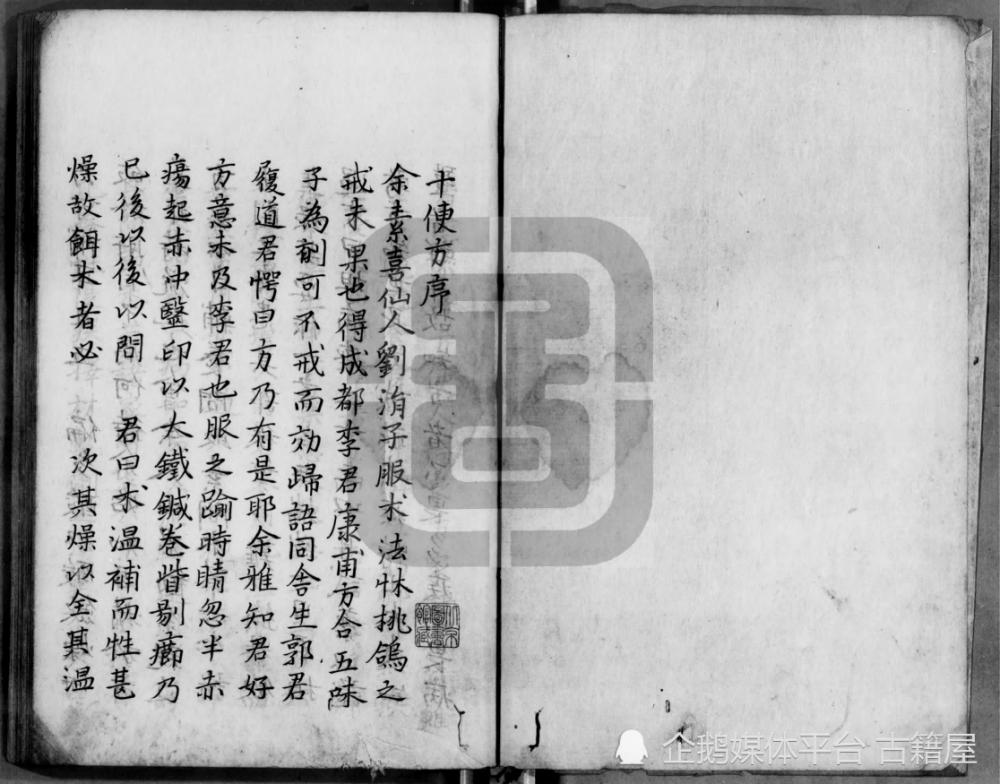 十便方序
余素喜仙人劉涓子服朮法怵桃鴿之
戒未果也得成都李君康甫方合五味
子為劑可不戒而効歸語同舍生郭君
履道君愕曰方乃有是耶余雅知君好
方意未及李君也服之踰時睛忽半赤
瘍起赤中毉印以大鐵鍼卷眥剔癤乃
已後以後以問 君曰朮温補而性甚
燥故餌朮者必 次其燥以全其温
企鹅媒体平台 古籍屋